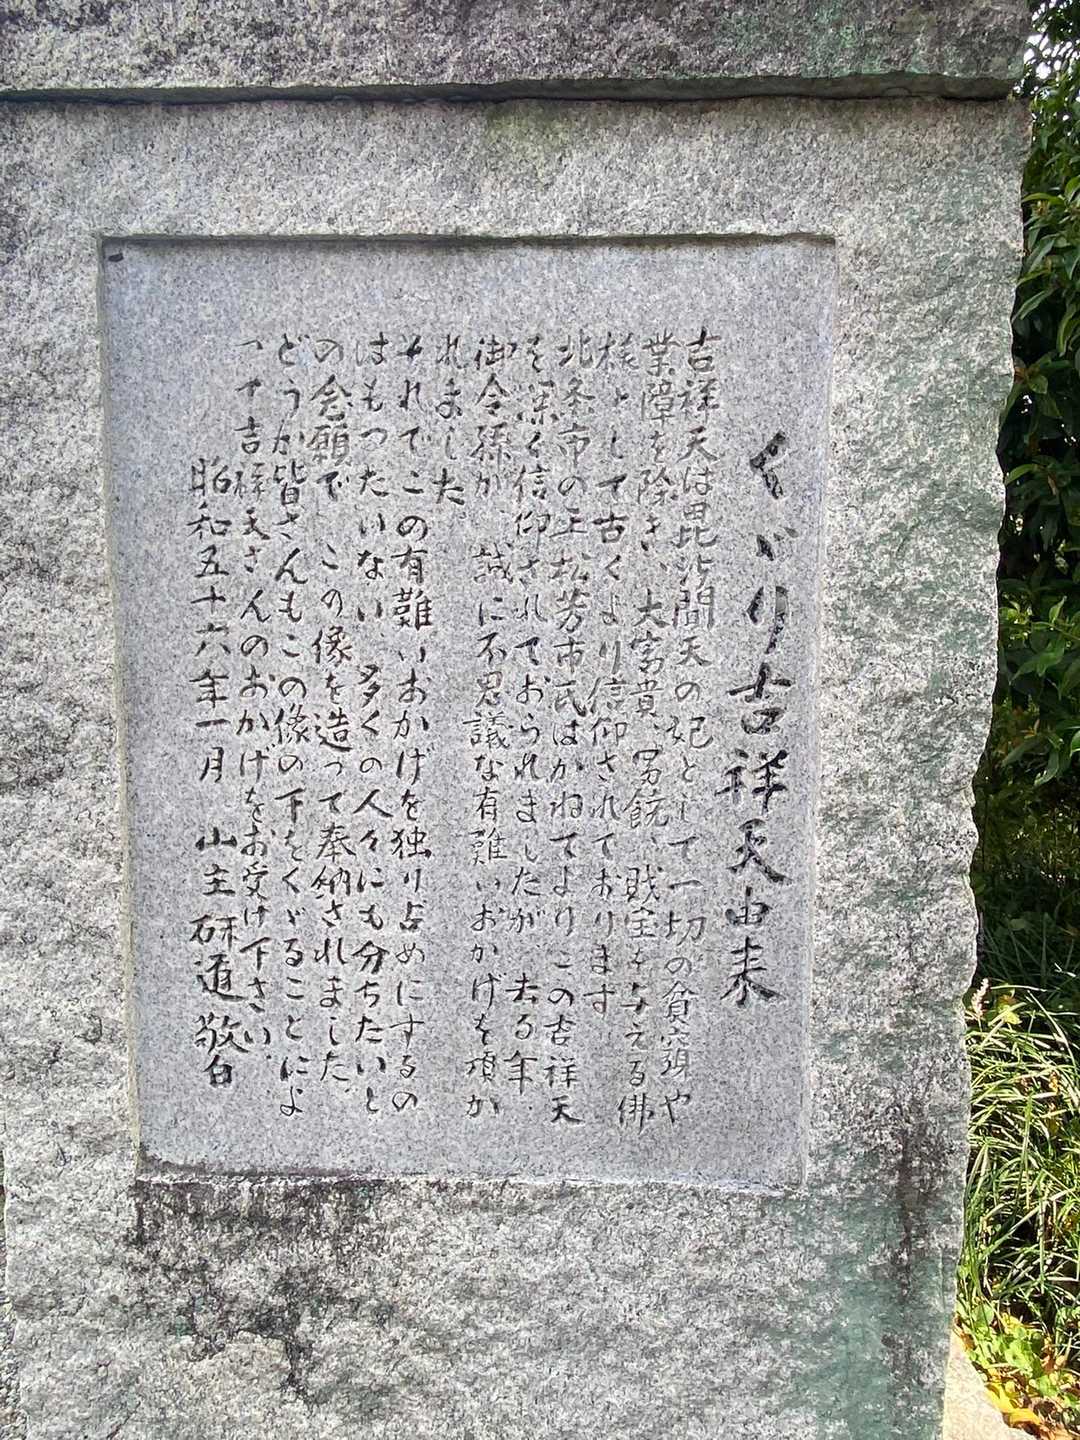 くゞり吉祥天由来
吉祥天は毘沙門天の妃として一切の貧窮や
業障を除き、大富貴、男饒、財宝を与える佛
様として古くより信仰されております
北条市の王松芳市氏はかねてよりこの吉祥天
を深く信仰されておられましたが、去る年、
御令孫が、誠に不思議な有難いおかげを頂か
れました。
それでこの有難いおかげを独り占めにするの
はもったいない、多くの人々にも分ちたいと
の念願で、この像を造って奉納されました。
どうか皆さんもこの像の下をくゞることによ
って吉祥天さんのおかげをお受け下さい。
昭和五十六年一月 山主 研道 敬白